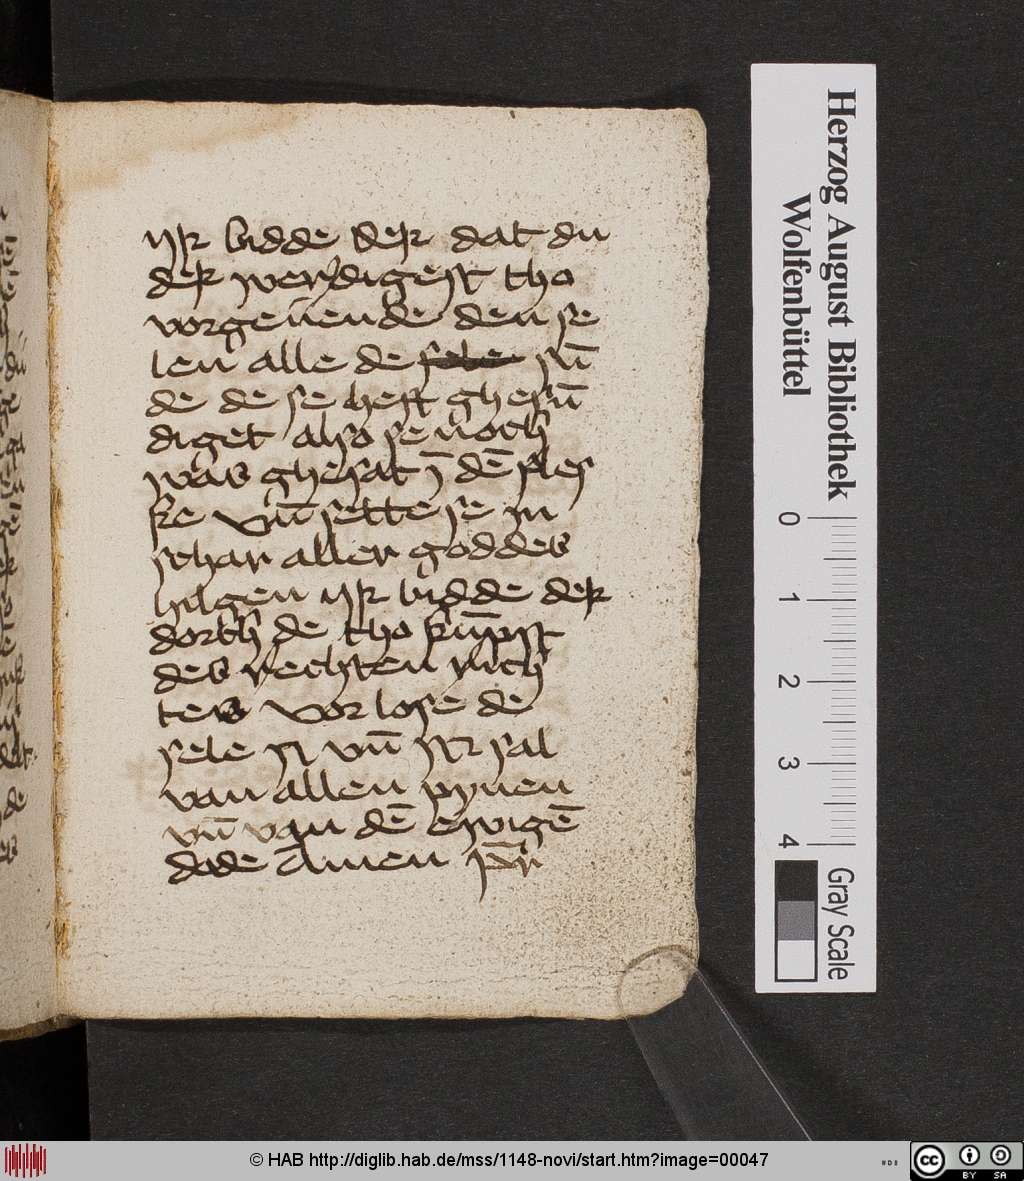 ysk bidde dek dat du
dek werdigest tho
vorgeuende den se
len alle de sele sūn
de de se heft ghesū
diget also se noch
was ghesat ī dē fles
ke vn̄ sette se in
schar aller goddes
hilgen ysk bidde dek
dorch de tho kūpst
des rechten rich
ters vorlose de
sele N vn̄ sal
van allen pynen
vn̄ van dē ewigē
dode Amen
Herzog August Bibliothek
Wolfenbüttel
0 1 2 3 4
Gray Scale
© HAB http://diglib.hab.de/mss/1148-novi/start.htm?image=00047
cc BY SA